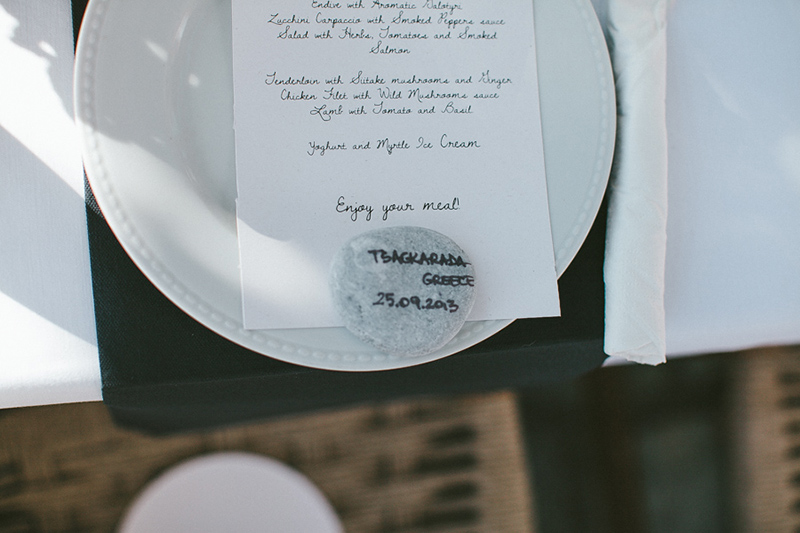 Endive with Aromatic Galotyri
Zucchini Carpaccio with Smoked Peppers sauce
Salad with Herbs, Tomatoes and Smoked
Salmon
Tenderloin with Siitake mushrooms and Ginger
Chicken Filet with Wild Mushrooms sauce
Lamb with Tomato and Basil
Yoghurt and Myrtle Ice Cream
Enjoy your meal!
TSAGKARADA
GREECE
25.09.2013